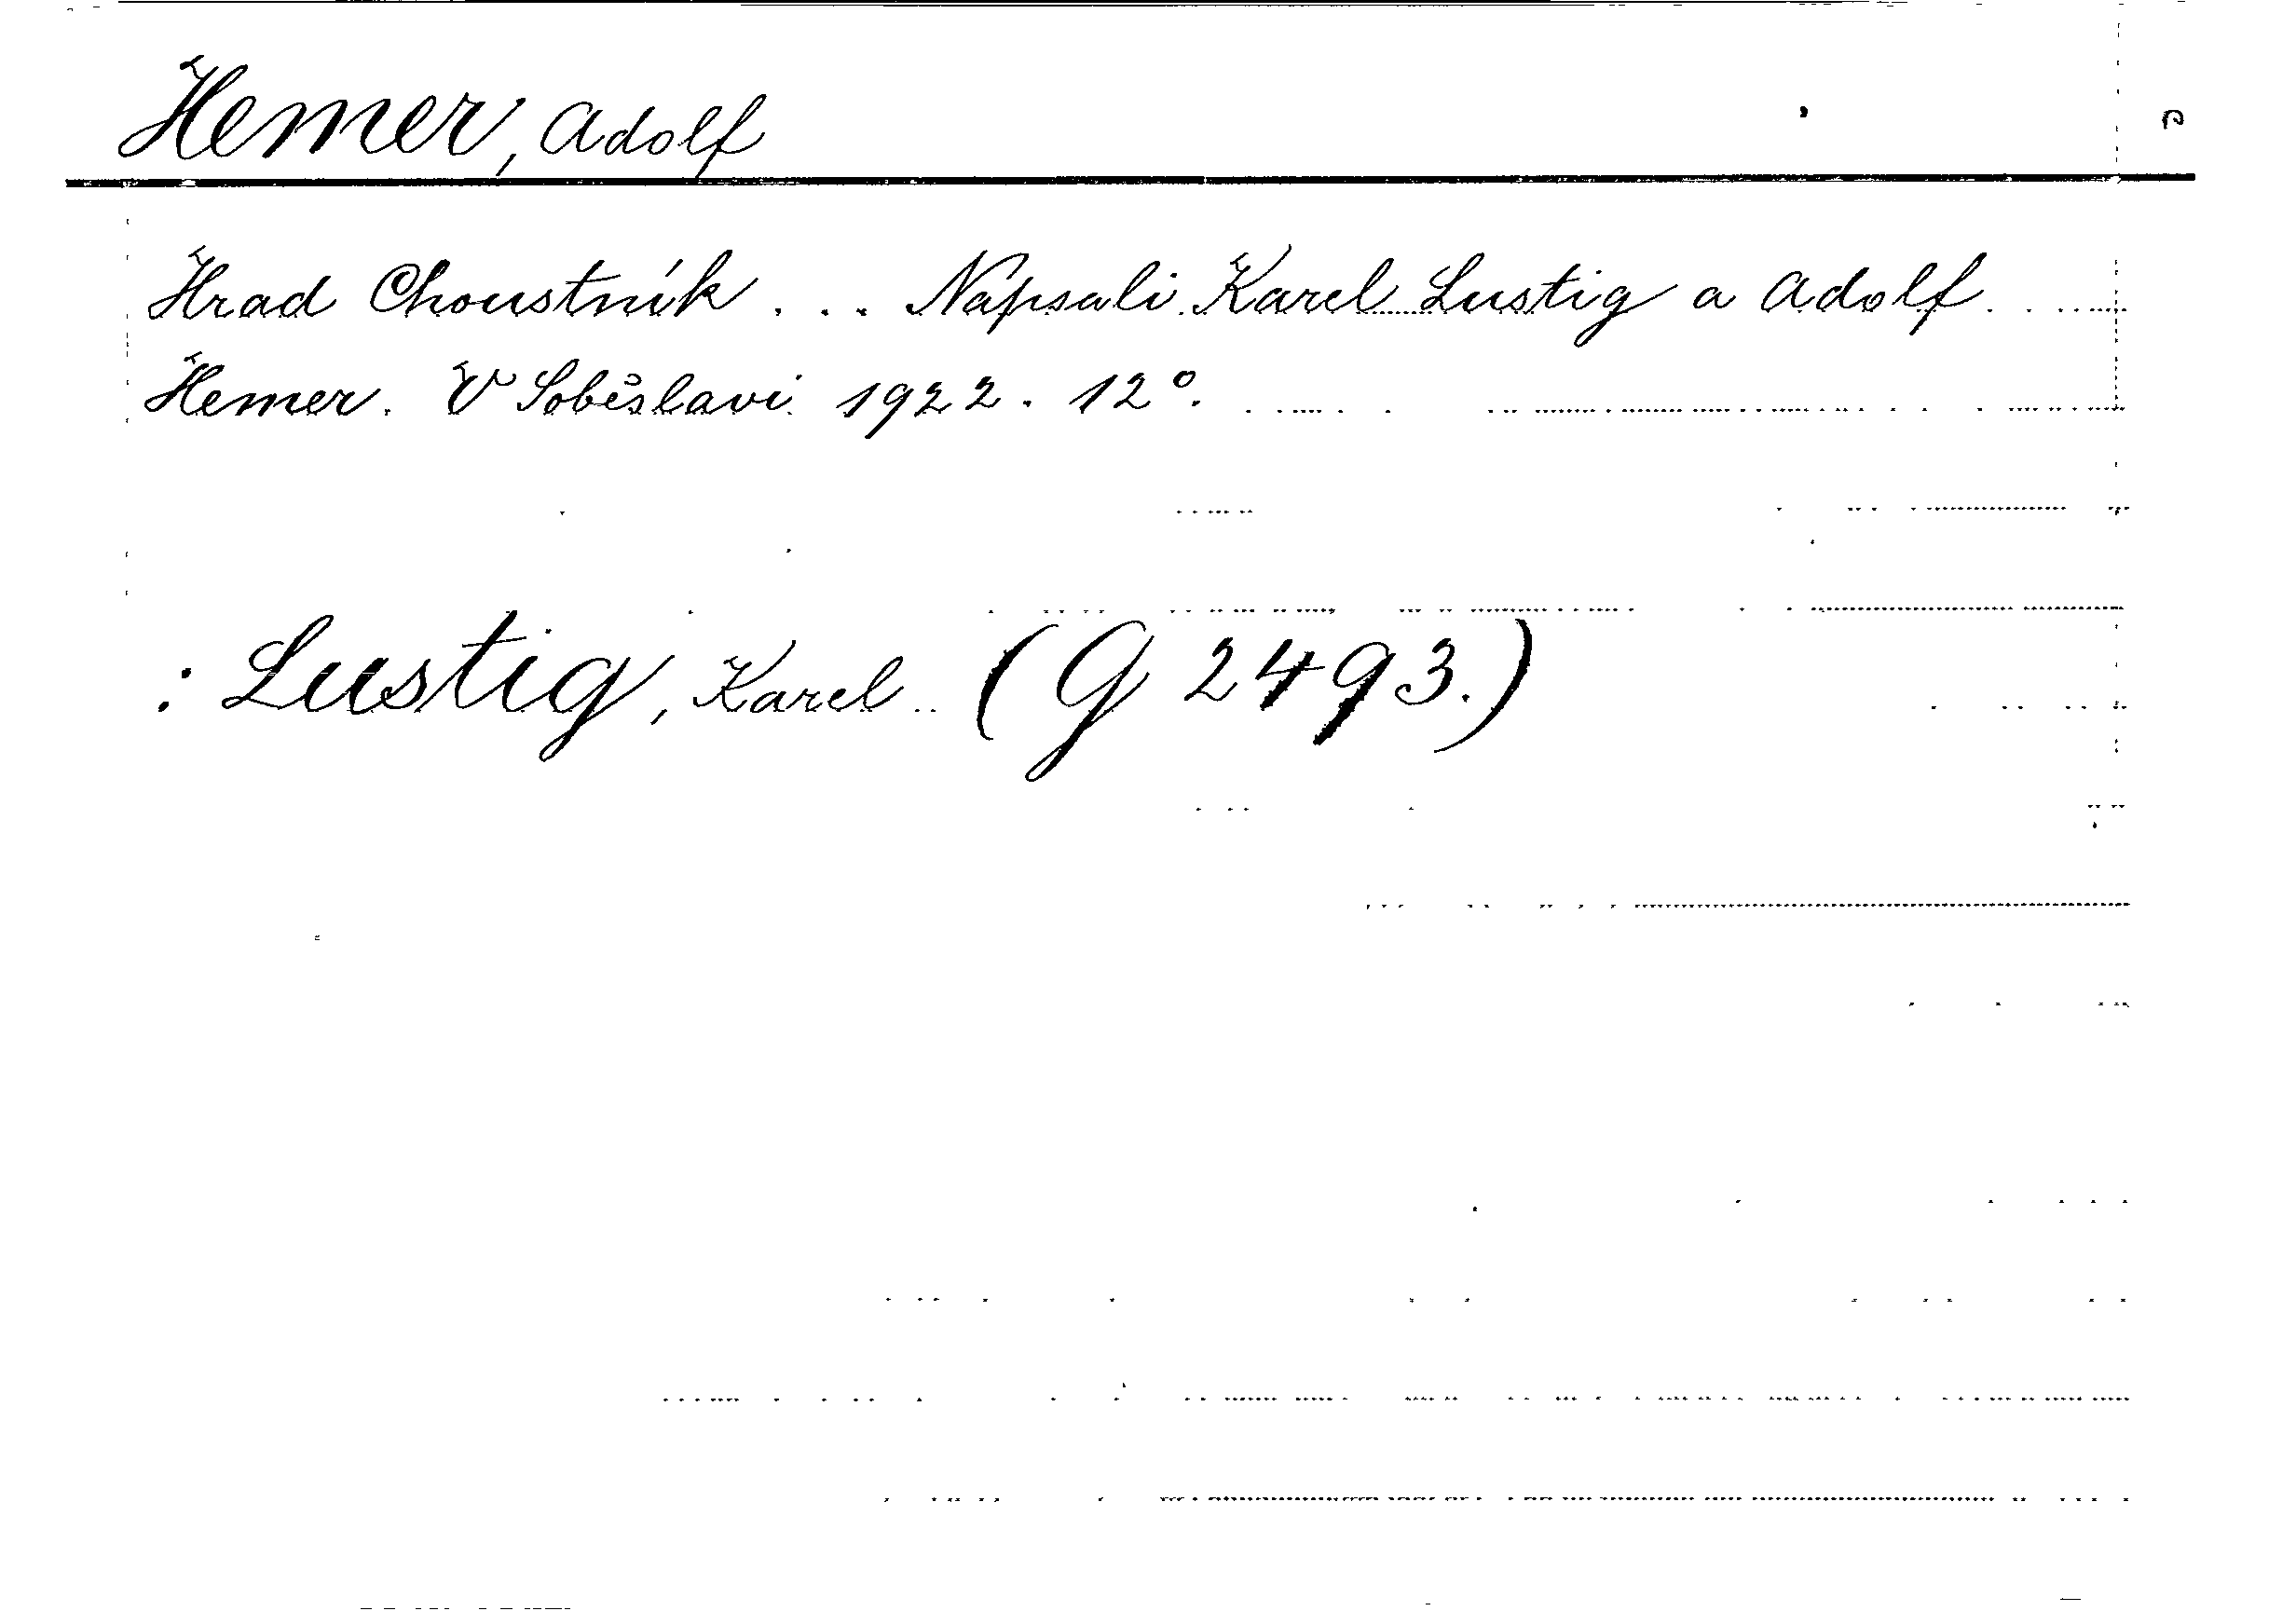 Hemer, Adolf
Hrad Choustník ... Napsali Karel Lustig a Adolf
Hemer. V Soběslavi 1922. 12°.
: Lustig, Karel (G 2493.)